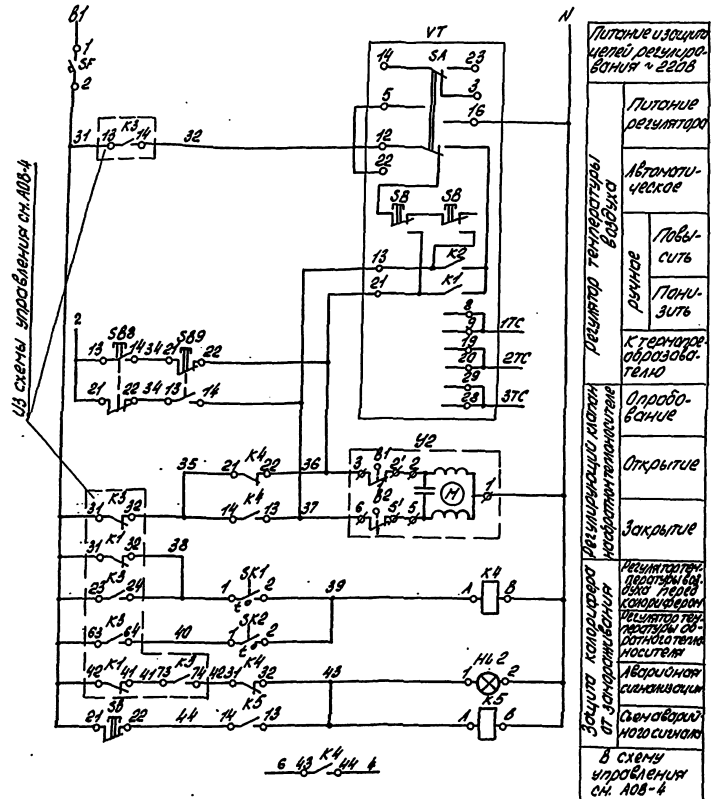 В1
N
1
SF
2
31
13
К3
14
32
VT
14
SA
23
3
5
16
12
22
SB
SB
13
К2
21
К1
8
9
1ТС
19
20
2ТС
29
28
3ТС
Из схемы управления см. А0В-4
2
13
SB8
14
34
21
SB9
22
21
22
34
13
14
35
21
К4
22
36
У2
3
В1
2'
2
31
32
14
К4
13
37
6
В2
5'
5
М
1
К1
31
32
38
23
К3
24
1
SK1
2
t°
39
А
К4
В
63
К3
64
40
1
SK2
2
t°
42
К1
41
41
73
К3
74
42
31
К4
32
43
1
HL2
2
21
SB
22
44
14
К5
13
А
К5
В
6
43
К4
44
4
Питание и защита
цепей регулиро-
вания ~220В
Регулятор температуры
воздуха
Питание
регулятора
Автомати-
ческое
ручное
Повы-
сить
Пони-
зить
К термопре-
образова-
телю
Регулирующий клапан
на обратном теплоносителе
Опробо-
вание
Открытие
Закрытие
Защита калорифера
от замораживания
Регулятор тем-
пературы воз-
духа перед
калорифером
Регулятор тем-
пературы об-
ратного тепло-
носителя
Аварийная
сигнализация
Съем аварий-
ного сигнала
В схему
управления
см. А0В-4